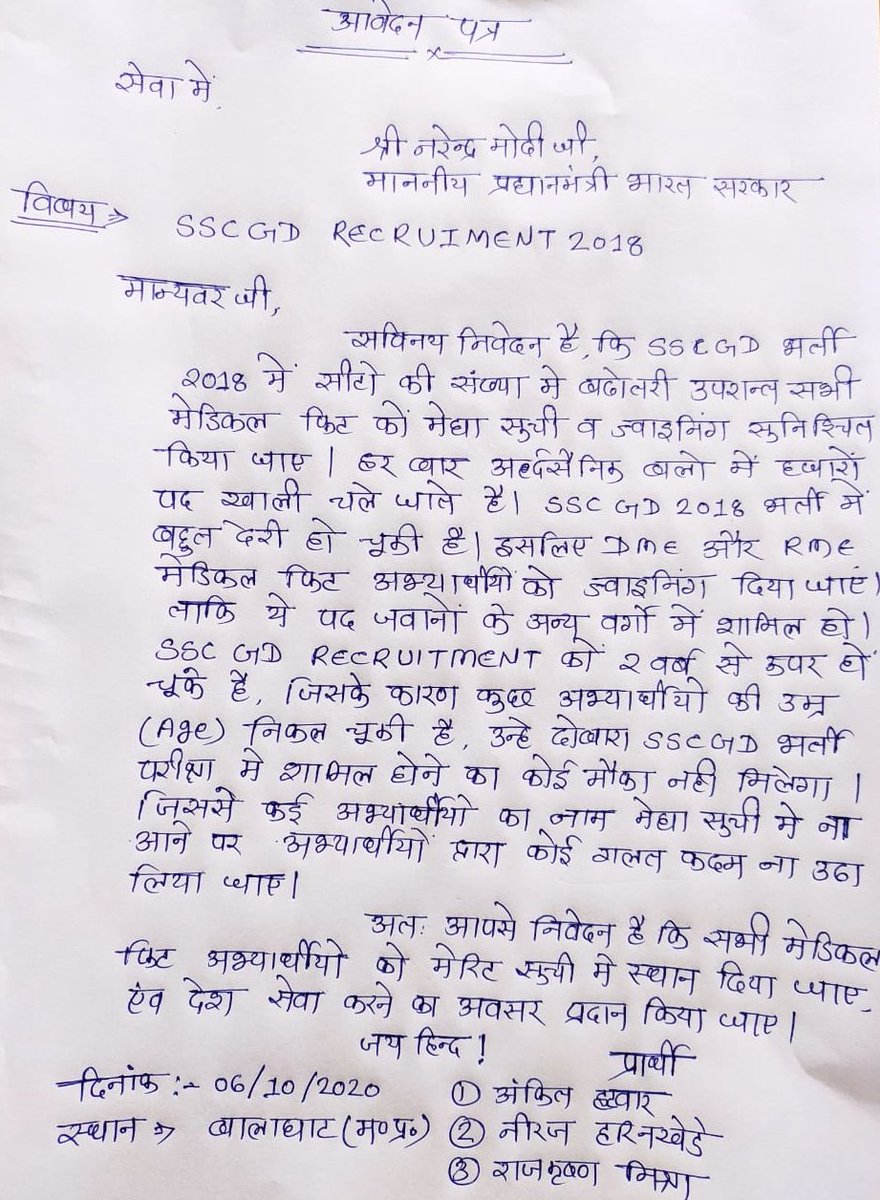 आवेदन पत्र
x
सेवा में,
श्री नरेन्द्र मोदी जी,
माननीय प्रधानमंत्री भारत सरकार
विषय ⇒
SSC GD RECRUIMENT 2018
मान्यवर जी,
सविनय निवेदन है, कि SSC GD भर्ती
2018 में सीटो की संख्या मे बढोतरी उपरान्त सभी
मेडिकल फिट को मेधा सूची व ज्वाइनिंग सुनिश्चित
किया जाए। हर बार अर्ध्दसैनिक बलो में हजारों
पद खाली चले जाते है। SSC GD 2018 भर्ती में
बहुत देरी हो चूकी है। इसलिए DME और RME
मेडिकल फिट अभ्यार्थीयों को ज्वाइनिंग दिया जाएं।
ताकि ये पद जवानों के अन्य वर्गो में शामिल हो।
SSC GD RECRUITMENT को २ वर्ष से ऊपर हो
चूके है, जिसके कारण कुछ अभ्यार्थीयो की उम्र
(Age) निकल चूकी है, उन्हे दोबारा SSC GD भर्ती
परीक्षा मे शामिल होने का कोई मौका नही मिलेगा।
जिससे कई अभ्यार्थीयो का नाम मेधा सुची मे ना
आने पर अभ्यार्थीयों द्वारा कोई गलत कदम ना उठा
लिया जाए।
अतः आपसे निवेदन है कि सभी मेडिकल
फिट अभ्यार्थीयो को मेरिट सुची मे स्थान दिया जाए
एंव देश सेवा करने का अवसर प्रदान किया जाए।
जय हिन्द!
प्रार्थी
दिनांक :- 06/10/2020
① अंकित
स्थान ⇒ बालाघाट (म०प्र०)
② नीरज हारिनखेडे
③ राजकृष्ण मिश्रा